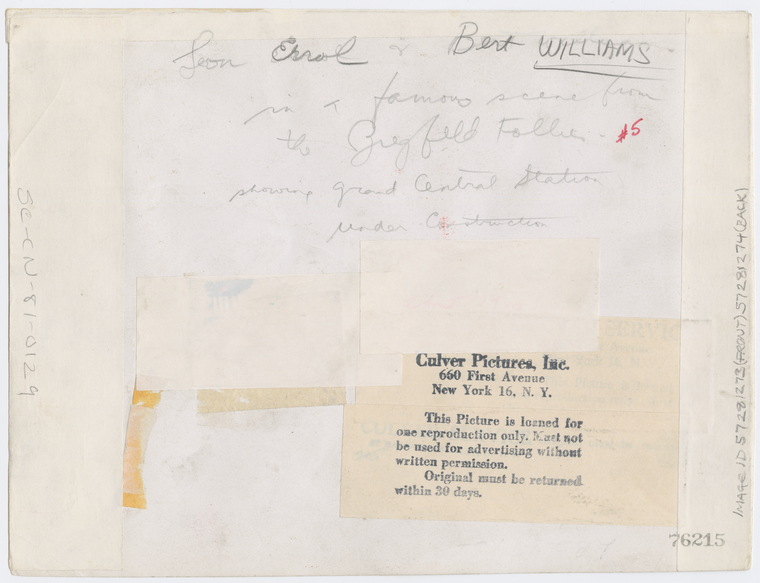 Leon Errol & Bert WILLIAMS
in a famous scene from
the Ziegfeld Follies - #5
showing Grand Central Station
under Construction
Culver Pictures, Inc.
660 First Avenue
New York 16, N. Y.
This Picture is loaned for
one reproduction only. Must not
be used for advertising without
written permission.
Original must be returned
within 30 days.
76215
SC-CN-81-0129
IMAGE ID 57281273(FRONT) 57281274(BACK)